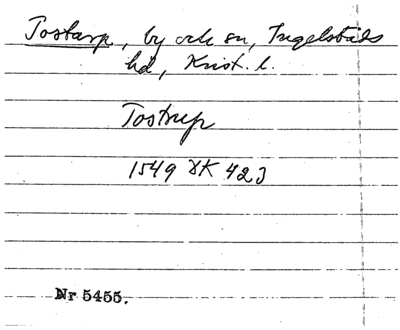 Tostarp, by och sn, Ingelstads
hd, Krist. l.
Tostrup
1549 DK 423
Nr 5455.